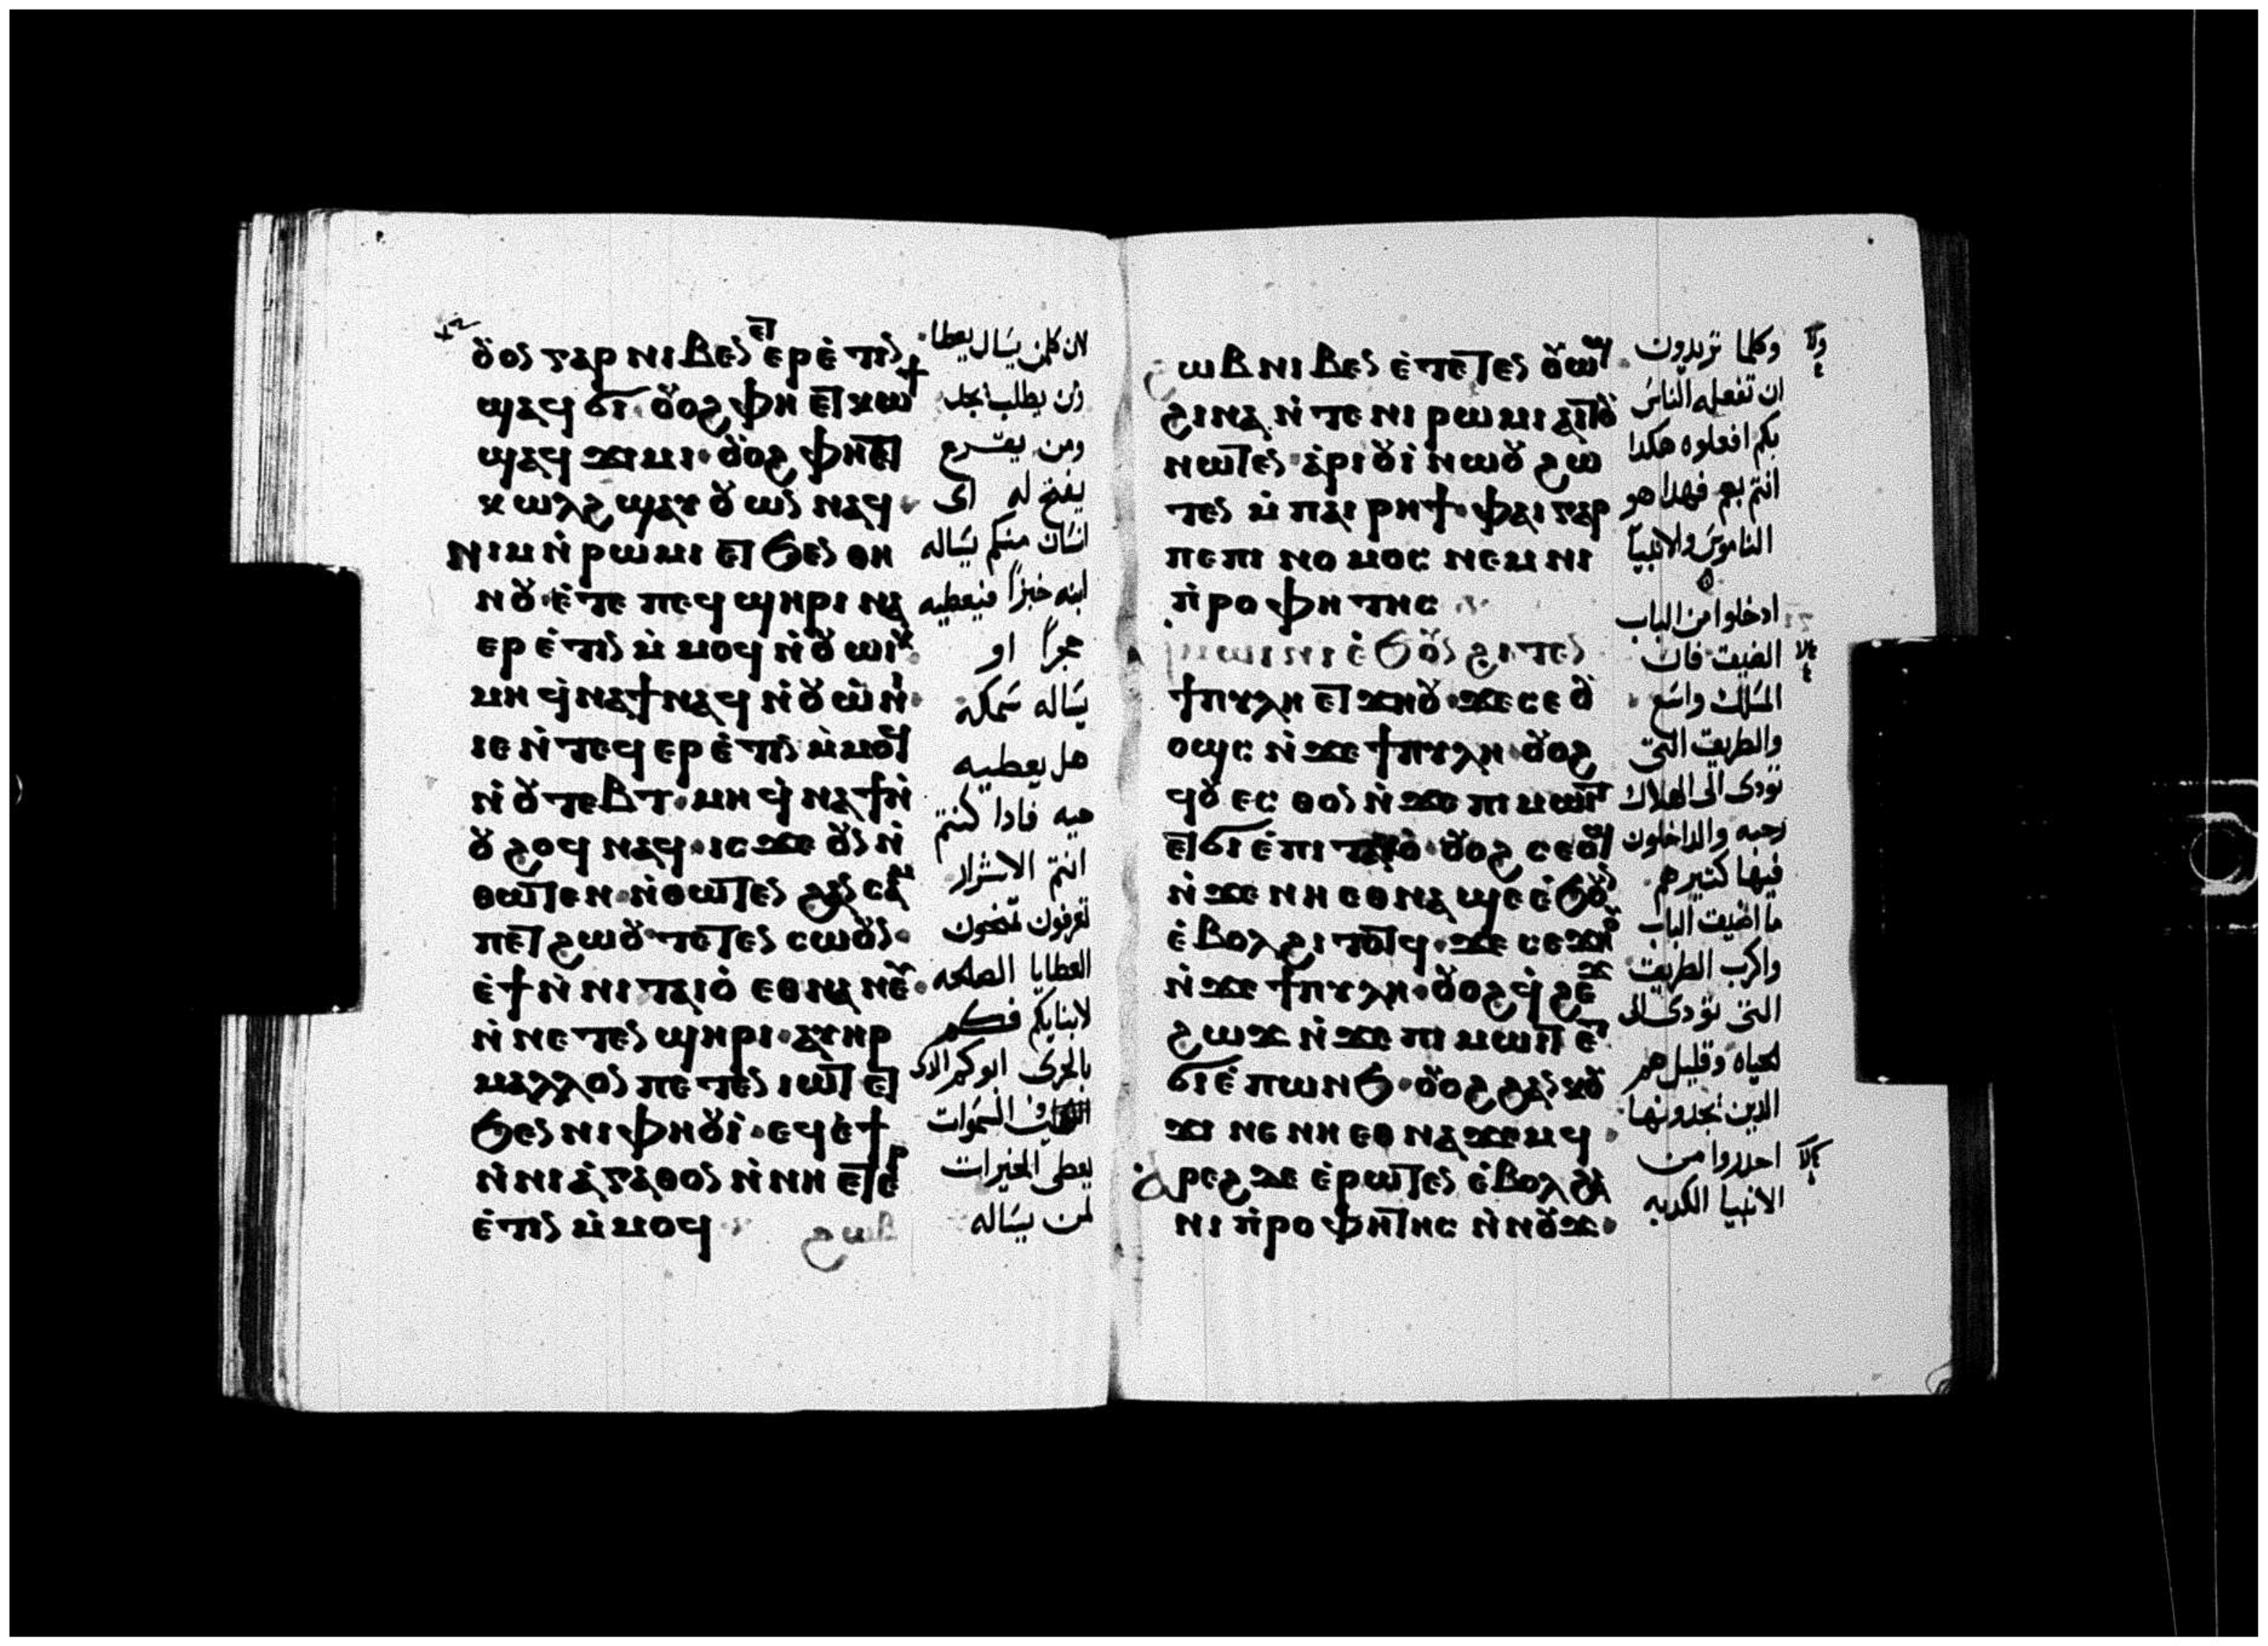 ⲟⲩⲟⲛ ⲅⲁⲣ ⲛⲓⲃⲉⲛ ⲉⲧⲉⲣⲉ̀ⲧⲓⲛ
ϣⲁϥϭⲓ· ⲟⲩⲟϩ ⲫⲏ ⲉⲧⲕⲱϯ
ϣⲁϥϫⲓⲙⲓ· ⲟⲩⲟϩ ⲫⲏ ⲉⲧ
ⲕⲱⲗϩ ϣⲁⲩⲟⲩⲱⲛ ⲛⲁϥ·
ⲛⲓⲙ ⲛ̀ⲣⲱⲙⲓ ⲉⲧϧⲉⲛ ⲑⲏ
ⲛⲟⲩ· ⲉ̀ⲧⲉ ⲡⲉϥϣⲏⲣⲓ ⲛⲁ
ⲉⲣⲉ̀ⲧⲓⲛ ⲙ̀ⲙⲟϥ ⲛ̀ⲟⲩⲱⲓⲕ·
ⲙⲏ ϥ̀ⲛⲁϯ ⲛⲁϥ ⲛ̀ⲟⲩⲱ̀ⲛⲓ·
ⲓⲉ ⲛ̀ⲧⲉϥⲉⲣⲉ̀ⲧⲓⲛ ⲙ̀ⲙⲟϥ
ⲛ̀ⲟⲩⲧⲉⲃⲧ· ⲙⲏ ϥ̀ⲛⲁϯ ⲛ̀
ⲟⲩϩⲟϥ ⲛⲁϥ· ⲓⲥϫⲉ ⲟⲩⲛ ⲛ̀
ⲑⲱⲧⲉⲛ· ⲛ̀ⲑⲱⲧⲉⲛ ϩⲁⲛⲥⲁⲙ
ⲡⲉⲧϩⲱⲟⲩ ⲧⲉⲧⲉⲛⲥⲱⲟⲩⲛ·
ⲉ̀ϯ ⲛ̀ⲛⲓⲧⲁⲓⲟ̀ ⲉⲑⲛⲁⲛⲉⲩ·
ⲛ̀ⲛⲉⲧⲉⲛϣⲏⲣⲓ· ⲁⲩⲏⲣ
ⲙⲁⲗⲗⲟⲛ ⲡⲉⲧⲉⲛⲓⲱⲧ ⲉⲧ
ϧⲉⲛ ⲛⲓⲫⲏⲟⲩⲓ̀· ⲉϥⲉ̀ϯ
ⲛ̀ⲛⲓⲁ̀ⲅⲁⲑⲟⲛ ⲛ̀ⲛⲏ ⲉⲧⲉⲣ
ⲉ̀ⲧⲓⲛ ⲙ̀ⲙⲟϥ· ϩⲱⲃ
لان كلمن يسال يعطا
ومن يطلب يجد
ومن يقرع
يفتح له اى
انسان منكم يساله
ابنه خبزا فيعطيه
حجرا او
يساله سمكه
هل يعطيه
حيه فادا كنتم
انتم الاشرار
تعرفون تمنحون
العطايا الصالحه
لابنايكم فكم
بالحرى ابوكم الدى
فى السموات
يعطى الخيرات
لمن يساله
ϩⲱⲃ ⲛⲓⲃⲉⲛ ⲉ̀ⲧⲉⲧⲉⲛ ⲟⲩⲱϣ
ϩⲓⲛⲁ ⲛ̀ⲧⲉ ⲛⲓⲣⲱⲙⲓ ⲁⲓⲧⲟⲩ
ⲛⲱⲧⲉⲛ· ⲁ̀ⲣⲓⲟⲩⲓ̀ ⲛⲱⲟⲩ ϩⲱ
ⲧⲉⲛ ⲙ̀ⲡⲁⲓⲣⲏϯ· ⲫⲁⲓ ⲅⲁⲣ
ⲡⲉ ⲡⲓⲛⲟⲙⲟⲥ ⲛⲉⲙ ⲛⲓ
ⲡ̀ⲣⲟⲫⲏⲧⲏⲥ
ⲙⲱⲓⲛⲓ ⲉ̀ϧⲟⲩⲛ ϩⲓⲧⲉⲛ
ϯⲡⲩⲗⲏ ⲉⲧϫⲏⲟⲩ· ϫⲉ ⲥⲉ ⲟⲩ
ⲟϣⲥ ⲛ̀ϫⲉ ϯⲡⲩⲗⲏ· ⲟⲩⲟϩ
ϥⲟⲩⲉⲥⲑⲟⲛ ⲛ̀ϫⲉ ⲡⲓⲙⲱⲓⲧ
ⲉⲧϭⲓ ⲉ̀ⲡⲓⲧⲁⲕⲟ̀· ⲟⲩⲟϩ ⲥⲉⲟϣ
ⲛ̀ϫⲉ ⲛⲏ ⲉⲑⲛⲁϣⲉ ⲉ̀ϧⲟⲩⲛ
ⲉ̀ⲃⲟⲗ ϩⲓⲧⲟⲧϥ· ϫⲉ ⲥⲉϫⲏⲟⲩ
ⲛ̀ϫⲉ ϯⲡⲩⲗⲏ· ⲟⲩⲟϩ ϥ̀ϩⲉϫ
ϩⲱϫ ⲛ̀ϫⲉ ⲡⲓⲙⲱⲓⲧ ⲉⲧ
ϭⲓ ⲉ̀ⲡⲱⲛϧ· ⲟⲩⲟϩ ϩⲁⲛⲕⲟⲩ
ϫⲓ ⲛⲉ ⲛⲏ ⲉⲑⲛⲁϫⲉⲙϥ·
ⲁ̀ⲣⲉϩ ⲇⲉ ⲉ̀ⲣⲱⲧⲉⲛ ⲉ̀ⲃⲟⲗ ϩⲁ
ⲛⲓⲡ̀ⲣⲟⲫⲏⲧⲏⲥ ⲛ̀ⲛⲟⲩϫ·
وكلما تريدون
ان تفعله الناس
بكم افعلوه هكدا
انتم بهم فهدا هو
الناموس والانبيا
ادخلوا من الباب
الضيق فان
المسلك واسع
والطريق التى
تودى الى الهلاك
رحبه والداخلون
فيها كتير هم
ما اضيق الباب
واكرب الطريق
التى تودى الى
الحياه وقليل هم
الدين يجدونها
احدروا من
الانبيا الكدبه